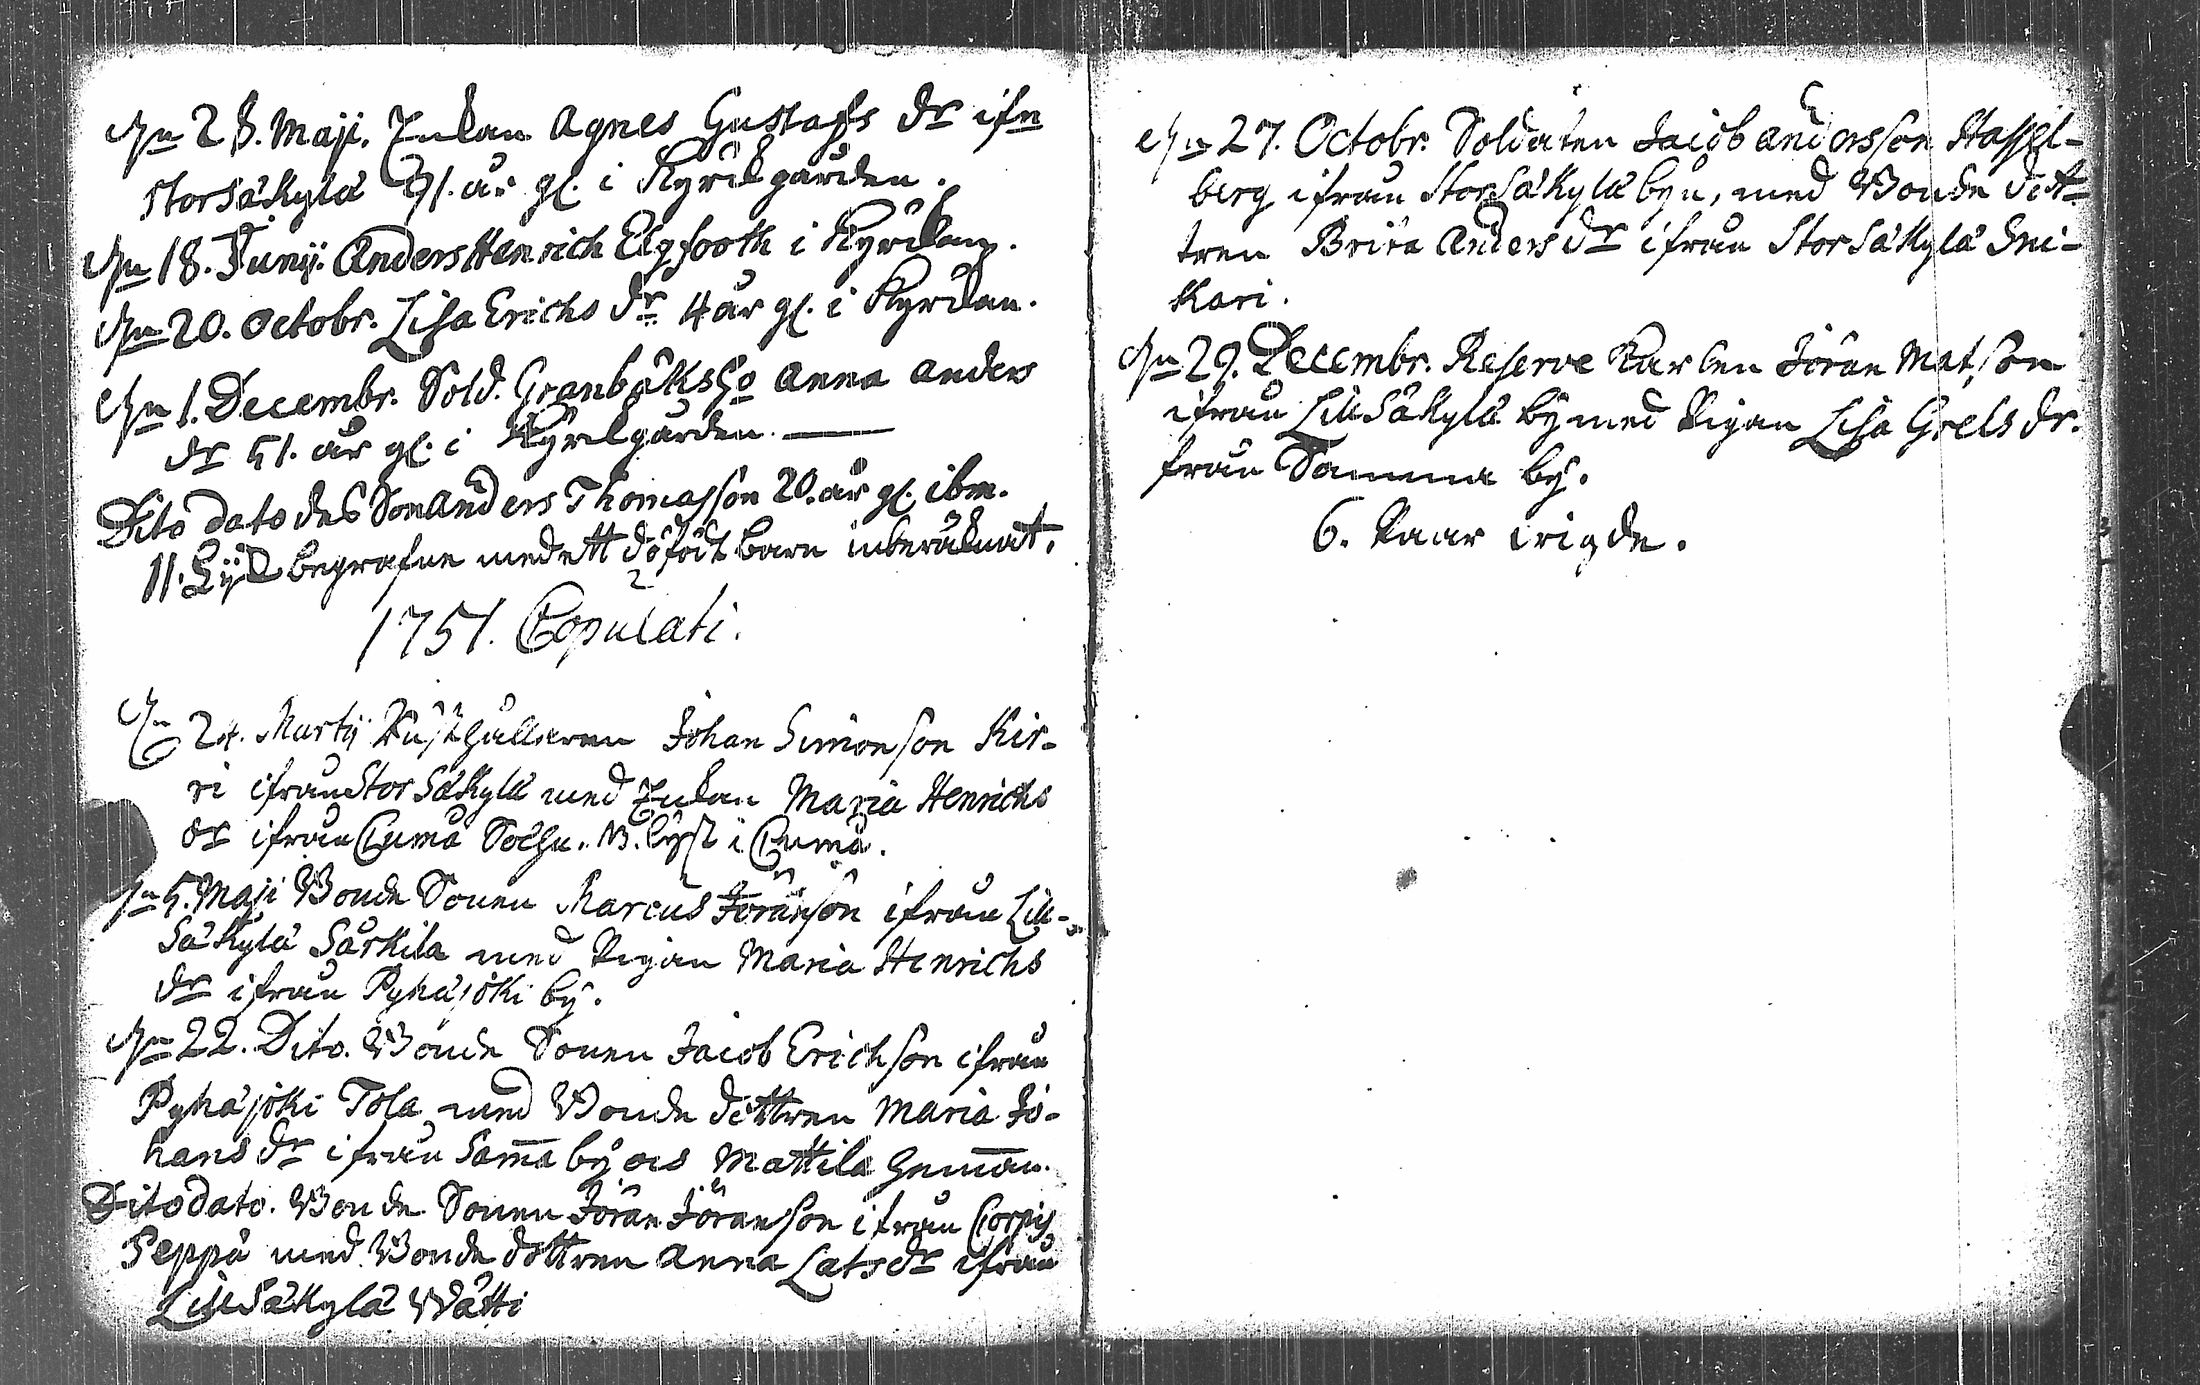 dn 28. Maji. Enkan Agnes Gustafs dr ifn
Storsäkylä 71. år gl. i Kyrckgården.
dn 18. Junij. Anders Henrich Elgfooth i Kyrckan.
dn 20. Octobr. Lisa Erichs dr 4 år gl. i Kyrckan.
dn 1. Decembr. Sold. Granbåks ho Anna Anders
dr 51. år gl. i Kyrckgården.
Dito dato des Son Anders Thomasson 20. år gl. ibm.
11. Lijk begrafne med ett dödfödt barn inberäknat.
1751. Copulati.
dn 24. Martij Rusthållaren Johan Simonson Kir-
ri ifrån Stor Säkylä med Enkan Maria Henrichs
dr ifrån Eurna Sochn. N. lyst i Eurna.
dn 5. Maji Bonde Sonen Marcus Jöranson ifrån Lill-
Säkylä Särkilä med Pigan Maria Henrichs
dr ifrån Pyhäjoki by.
dn 22. Dito. Bonde Sonen Jacob Erichson ifrån
Pyhäjoki Tola med Bonde dottren Maria Jo-
hans dr ifrån Sama by och Mattila heman.
Dito dato. Bonde Sonen Jöran Jöranson ifrån Corpis
Seppä med Bonde dottren Anna Lats dr ifrån
Lill Säkylä Wätti
dn 27. Octobr. Soldaten Jacob Andersson Hassel-
berg ifrån Stor Säkylä byn, med Bonde dot-
tren Brita Anders dr ifrån Stor Säkylä Sni-
kari.
dn 29. Decembr. Reserve Karlen Jöran Matson
ifrån Lill Säkylä by med Pigan Lisa Grels dr.
från Samma by.
6. Paar wigde.